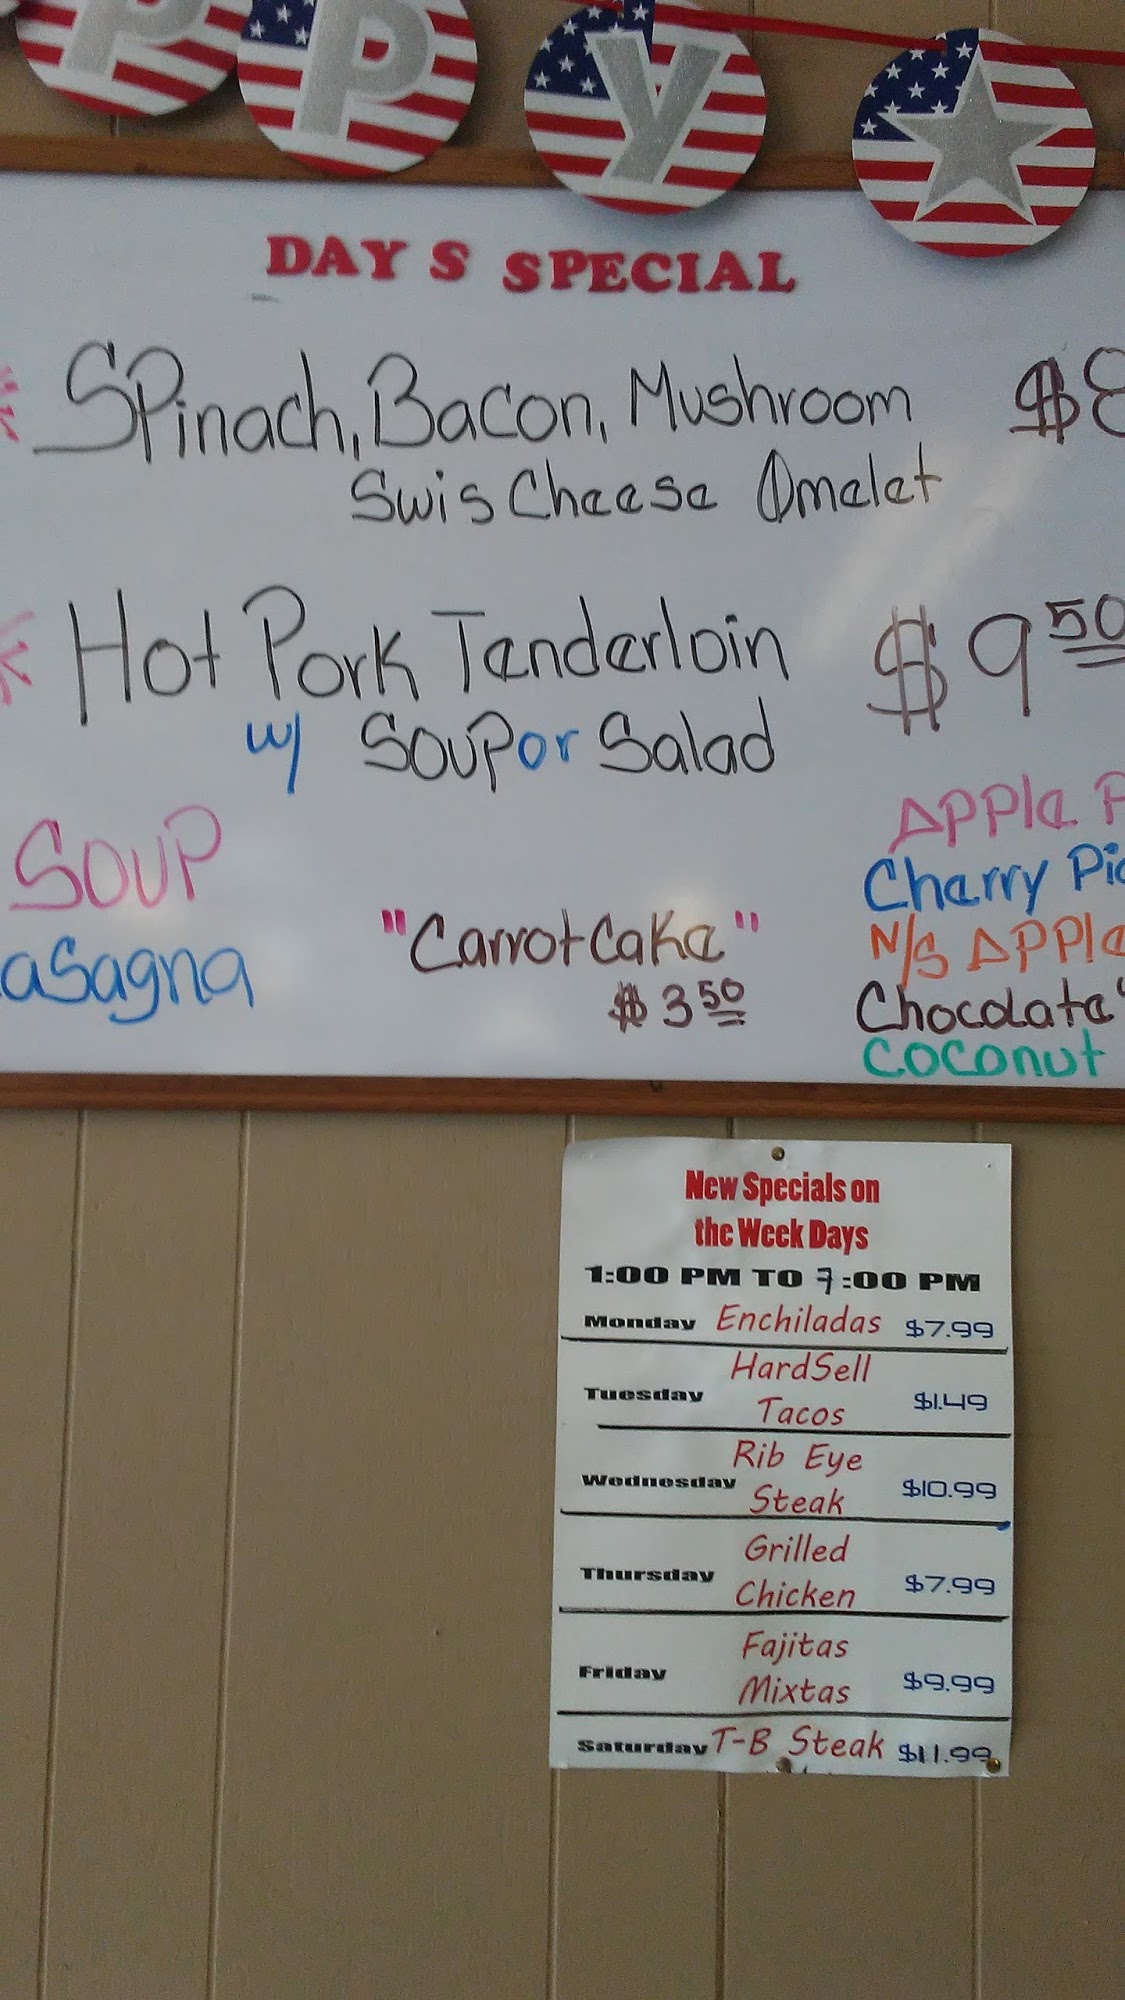 P P Y
DAY S SPECIAL
Spinach, Bacon, Mushroom $8
Swis Cheese Omelet
Hot Pork Tenderloin $9 50
w/ Soup or Salad
Soup
asagna
"Carrot Cake"
$3 50
Apple P
Cherry Pie
N/S Apple
Chocolate
Coconut
New Specials on
the Week Days
1:00 PM TO 7:00 PM
Monday Enchiladas $7.99
Tuesday HardSell
Tacos $1.49
Wednesday Rib Eye
Steak $10.99
Thursday Grilled
Chicken $7.99
Friday Fajitas
Mixtas $9.99
Saturday T-B Steak $11.99